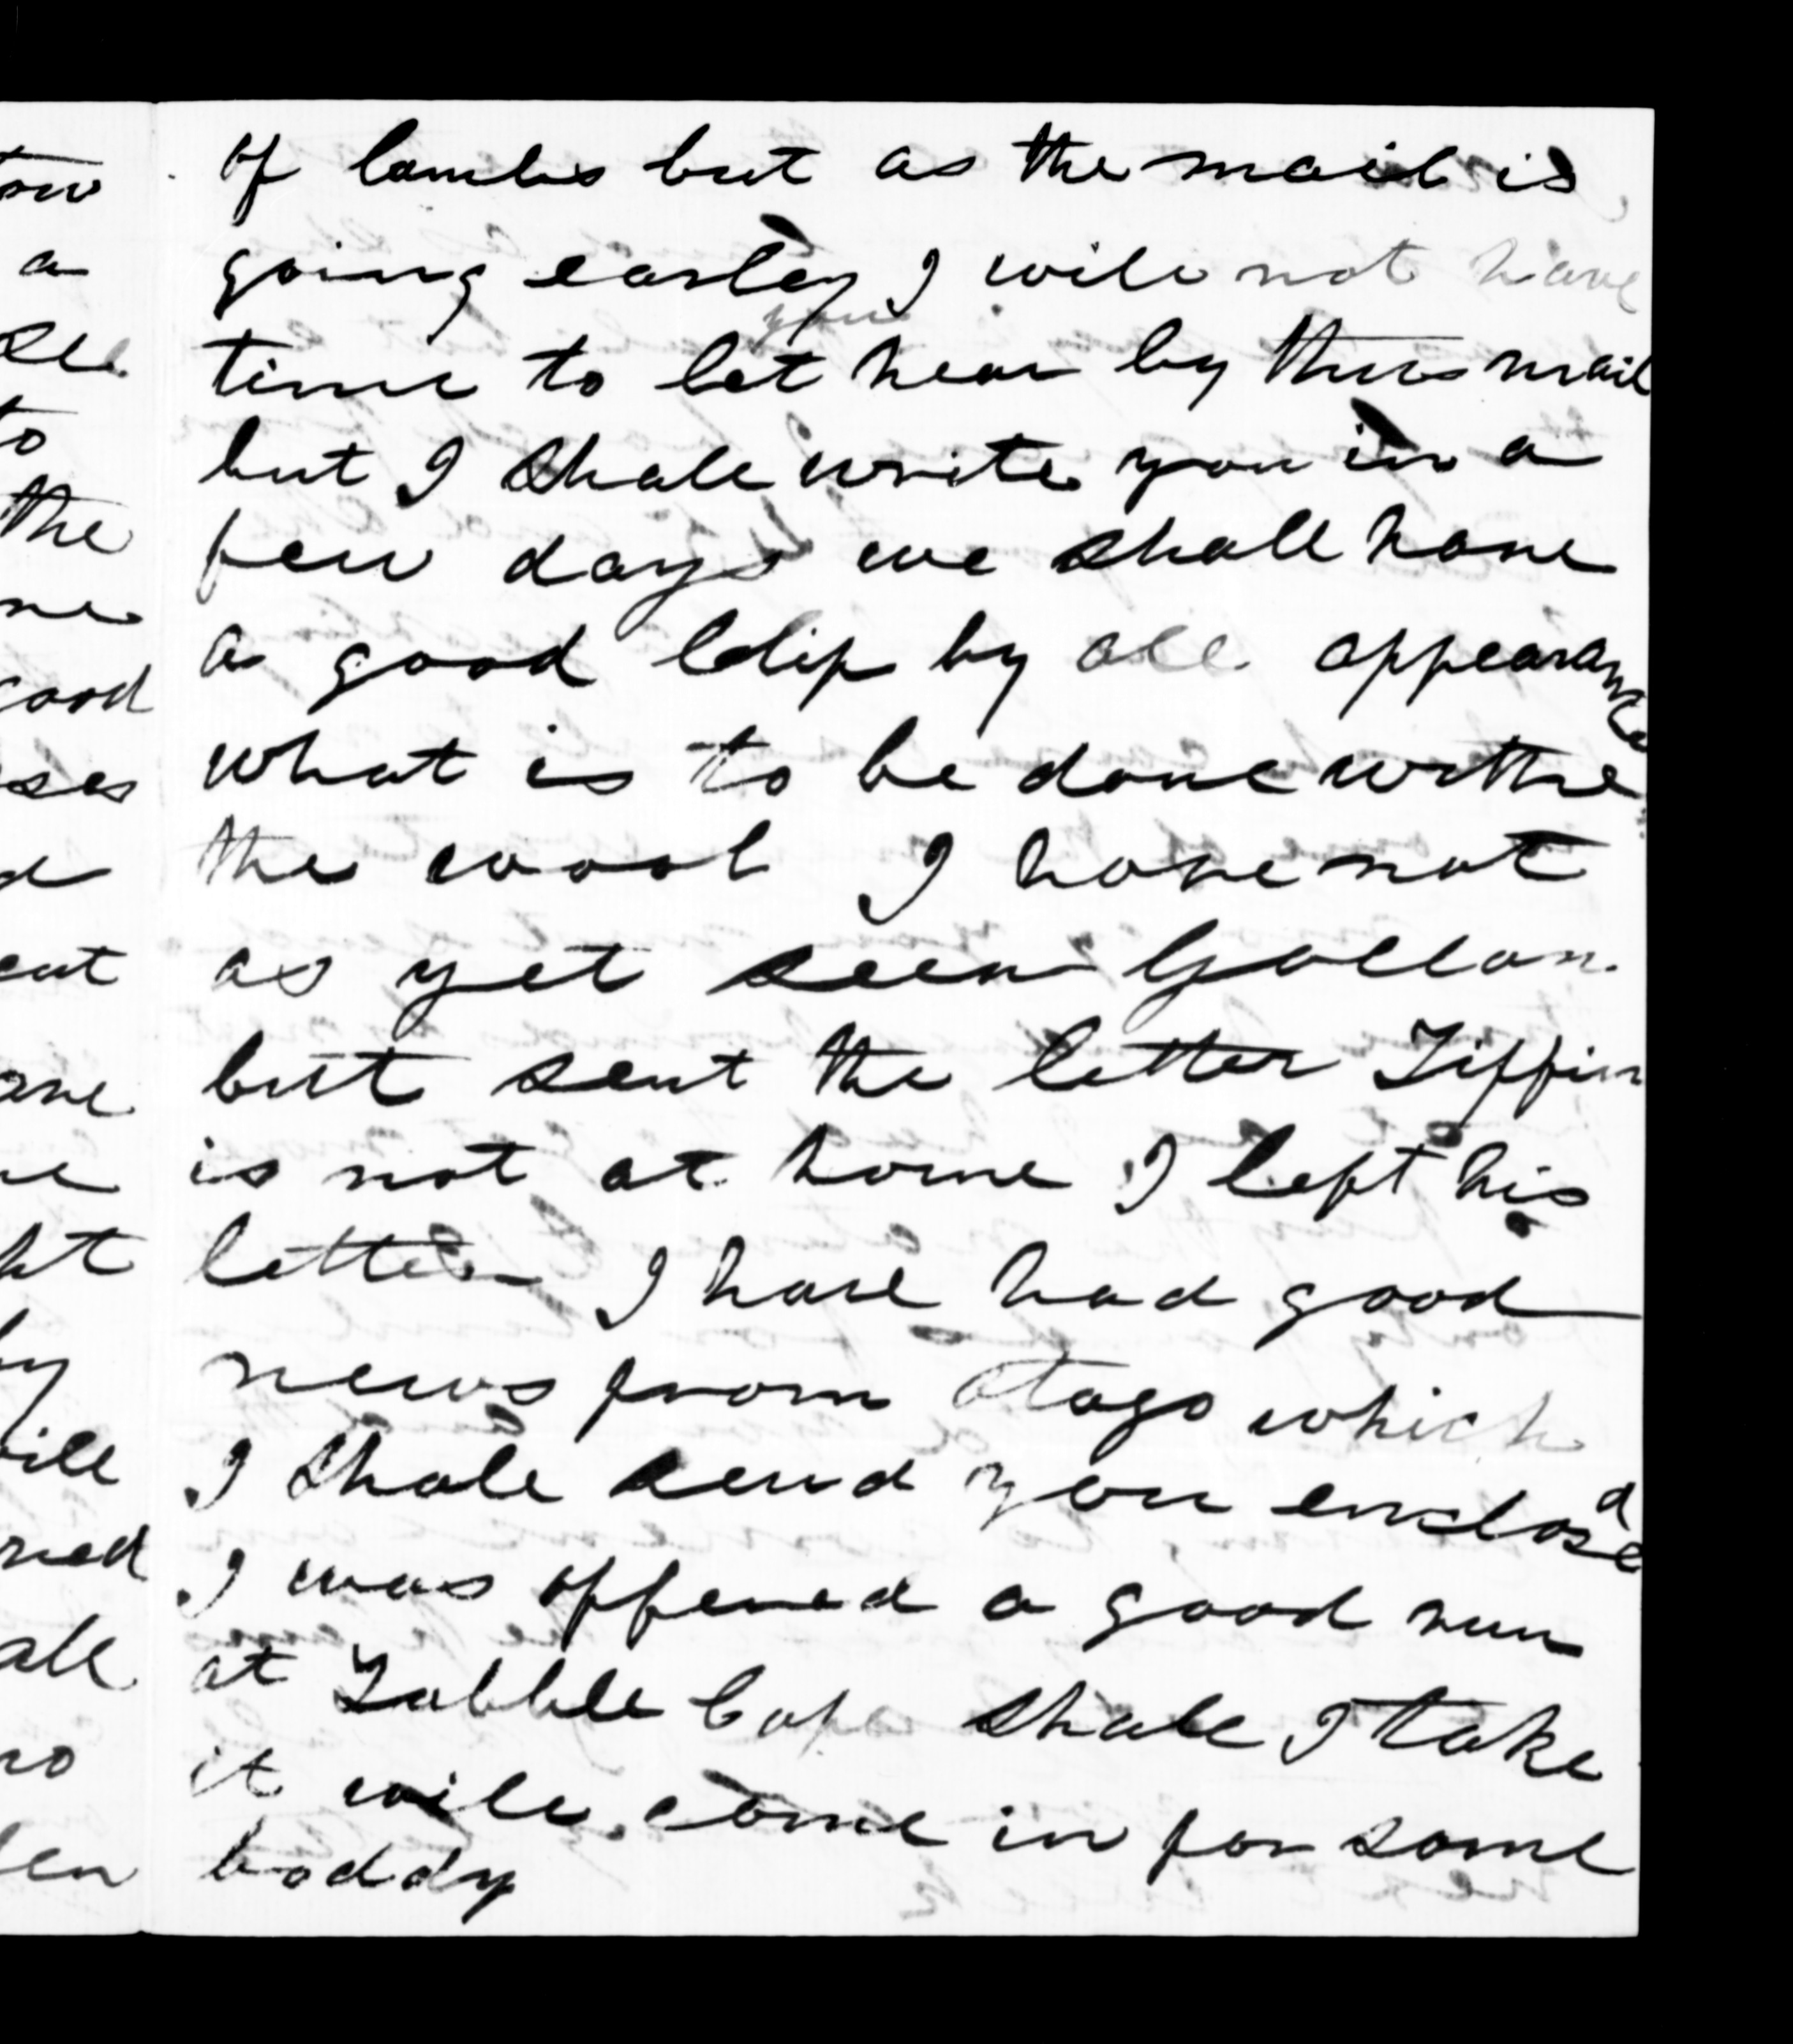 of lambs but as the mail is
going earley I will not have
time to let you hear by this mail
but I shall write you in a
few days we shall have
a good Clip by all appearance
what is to be done withe
the wool I have not
as yet seen Gollan
but sent the letter Tiffin
is not at home I left his
letter I have had good
news from Otago which
I shall send you enclosed
I was offered a good run
at Tabble Cape shall I take
it will come in for some
boddy